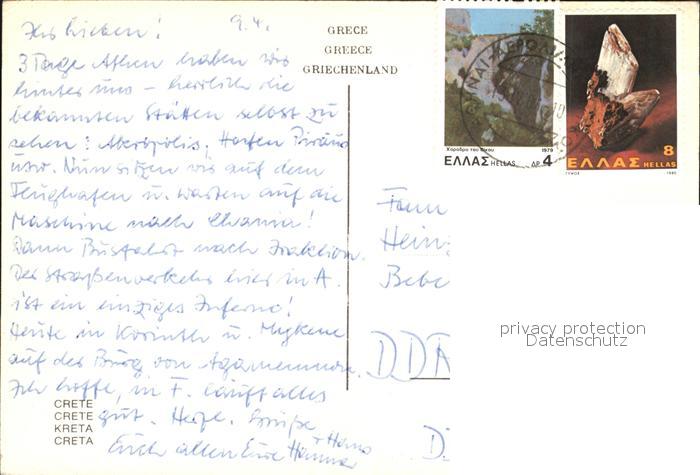 Ihr Lieben! 9.4.
3 Tage Athen haben wir
hinter uns – herrlich die
bekannten Stätten selbst zu
sehen: Akropolis, Hafen Piräus
usw. Nun sitzen wir auf dem
Flughafen u. warten auf die
Maschine nach Chania!
Dann Busfahrt nach Iraklion.
Der Straßenverkehr hier in A.
ist ein einziges Inferno!
Heute in Korinth u. Mykene
auf der Burg von Agamemnon.
Ich hoffe, in F. läuft alles
gut. Herzl. Grüße
Euch allen Eure Hanna
+ Hans
CRETE
CRETE
KRETA
CRETA
GRECE
GREECE
GRIECHENLAND
Χαράδρα του Βίκου 1979
ΕΛΛΑΣ HELLAS ΔΡ. 4
8
ΕΛΛΑΣ HELLAS
ΓΥΨΟΣ 1980
Fam
Hein
Bebe
DDR
D
privacy protection
Datenschutz